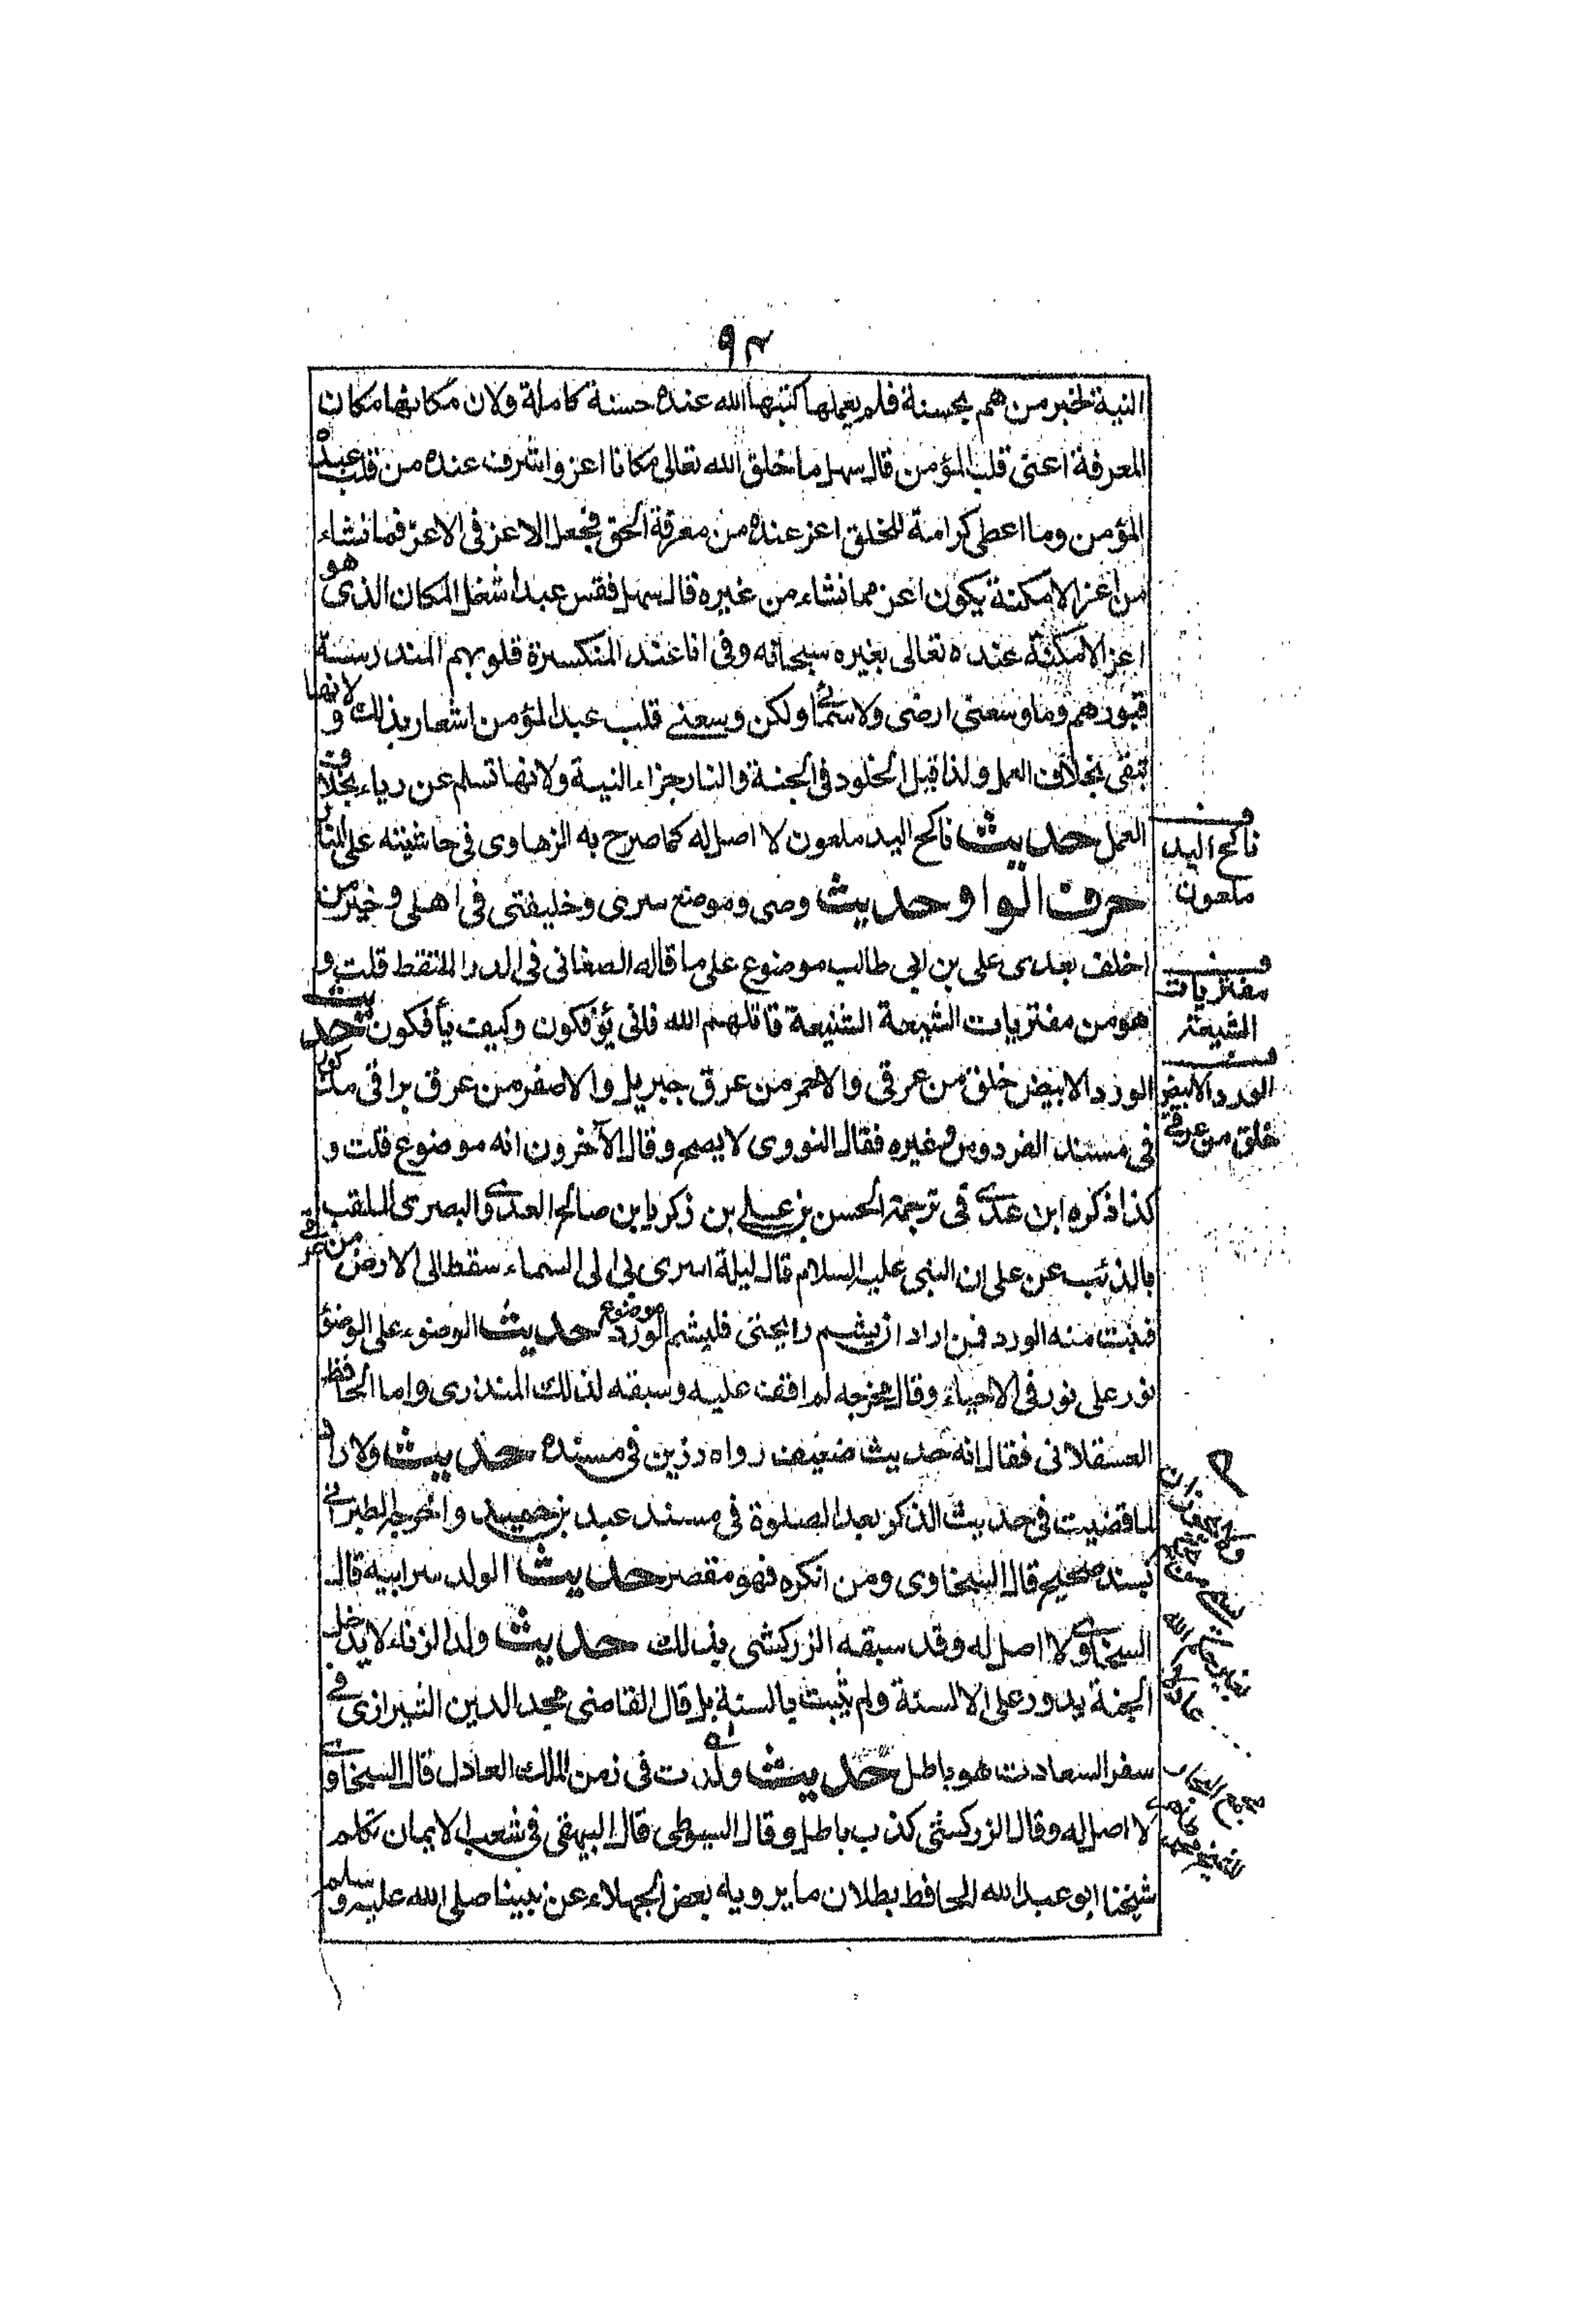 ٩٣
النية لخبر من هم بحسنة فلم يعملها كتبها الله عنده حسنة كاملة ولان مكانها مكان
المعرفة اعنى قلب المؤمن قال سهل ما خلق الله تعالى مكانا اعز واشرف عنده من قلب عبده
المؤمن وما اعطى كرامة للخلق اعز عنده من معرفة الحق فجعل الاعز فى الاعز فما نشاء
من اعز الامكنة يكون اعز مما نشاء من غيره قال سهل فتعس عبد اشغل المكان الذى هو
اعز الامكنة عنده تعالى بغيره سبحانه وفى انا عند المنكسرة قلوبهم المندرسة
قبورهم وما وسعنى ارضى ولا سمائى ولكن وسعنے قلب عبد المؤمن اشعار بذلك ولانها
تبقى بخلاف العمل ولذا قيل الخلود فى الجنة والنار جزاء النية ولانها تسلم عن رياء بخلاف
العمل حديث ناكح اليد ملعون لا اصل له كما صرح به الرهاوى فى حاشيته على المنار
حرف الواو حديث وصى وموضع سرى وخليفتى فى اهلى وخير من
اخلف بعدى على بن ابى طالب موضوع على ما قاله الصغانى فى الدر الملتقط قلت و
هو من مفتريات الشيعة الشنيعة قاتلهم الله فانى يؤفكون وكيف يأفكون حديث
الورد الابيض خلق من عرقى والاحمر من عرق جبريل والاصفر من عرق براقى مذكور
فى مسند الفردوس وغيره فقال النووى لا يصح وقال الآخرون انه موضوع قلت و
كذا ذكره ابن عدى فى ترجمة الحسن بن على بن زكريا بن صالح العدوى البصرى الملقب
بالذئب عن على ان النبى عليه السلام قال ليلة اسرى بى الى السماء سقط الى الارض من عرقى
فنبت منه الورد فمن اراد ان يشم رايحتى فليشم الورد موضوع حديث الوضوء على الوضوء
نور على نور فى الاحياء وقال مخرجه لم اقف عليه وسبقه لذلك المنذرى واما الحافظ
العسقلانى فقال انه حديث ضعيف رواه رزين فى مسنده حديث ولا راد
لما قضيت فى حديث الذكر بعد الصلوة فى مسند عبد بن حميد واخرجه الطبرانى
بسند صحيح قال السخاوى ومن انكره فهو مقصر حديث الولد سر ابيه قال
السخاوى لا اصل له وقد سبقه الزركشى بذلك حديث ولد الزناء لا يدخل
الجنة يدور على الالسنة ولم يثبت بالسنة بل قال القاضى مجد الدين الشيرازى فى
سفر السعادت هو باطل حديث ولدت فى زمن الملك العادل قال السخاوى
لا اصل له وقال الزركشى كذب باطل وقال السيوطى قال البيهقى فى شعب الايمان تكلم
شيخنا ابو عبد الله الحافظ بطلان ما يرويه بعض الجهلاء عن نبينا صلى الله عليه وسلم
ناكح اليد
ملعون
مفتريات
الشيعة
الورد الابيض
خلق من عرقى